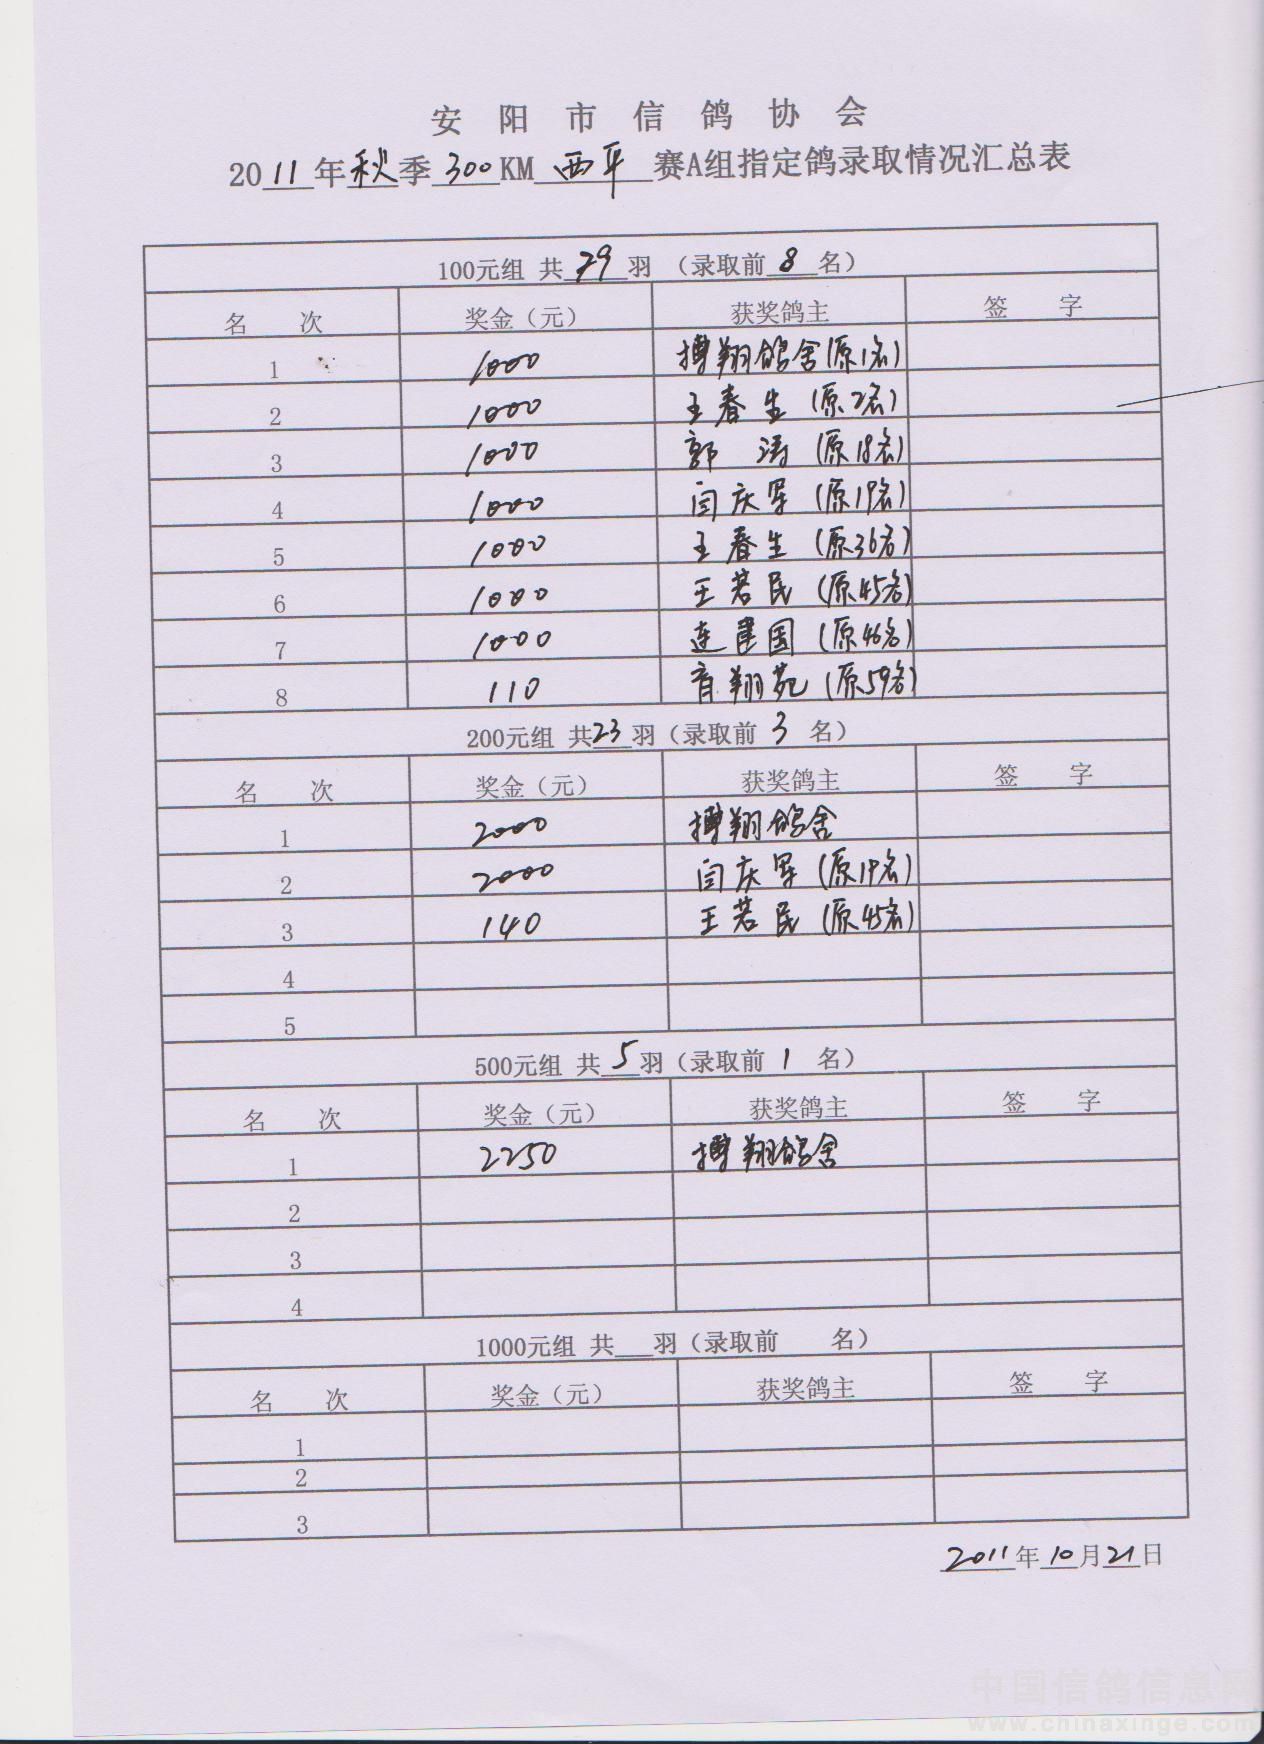 安阳市信鸽协会
2011年秋季300KM西平赛A组指定鸽录取情况汇总表
100元组 共79羽 (录取前8名)
名 次 奖金(元) 获奖鸽主 签 字
1 1000 搏翔鸽舍(原1名)
2 1000 王春生(原2名)
3 1000 郭涛(原18名)
4 1000 闫庆军(原19名)
5 1000 王春生(原36名)
6 1000 王若民(原45名)
7 1000 连建国(原46名)
8 110 育翔苑(原59名)
200元组 共23羽(录取前 3 名)
名 次 奖金(元) 获奖鸽主 签 字
1 2000 搏翔鸽舍
2 2000 闫庆军(原19名)
3 140 王若民(原45名)
4
5
500元组 共5羽(录取前 1 名)
名 次 奖金(元) 获奖鸽主 签 字
1 2250 搏翔鸽舍
2
3
4
1000元组 共___羽(录取前 名)
名 次 奖金(元) 获奖鸽主 签 字
1
2
3
2011年10月21日
中国信鸽信息网
www.chinaxinge.com